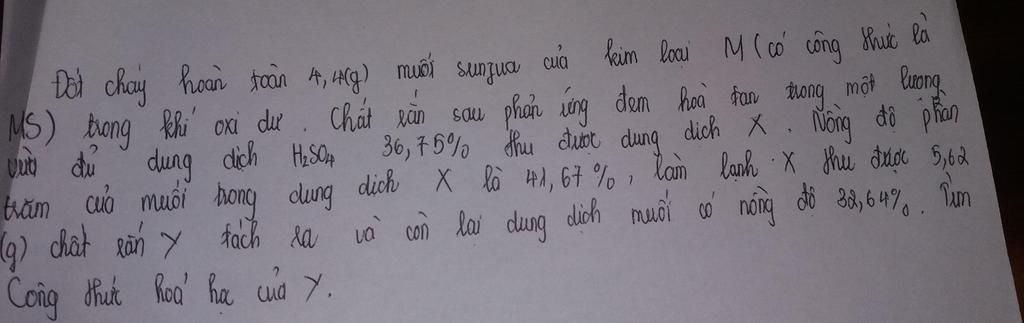 Đốt cháy hoàn toàn 4,4(g) muối sunfua của kim loại M (có công thức là
MS) trong khí oxi dư. Chất rắn sau phản ứng đem hoà tan trong một lượng
vừa đủ dung dịch H₂SO₄ 36,75% thu được dung dịch X. Nồng độ phần
trăm của muối trong dung dịch X là 41,67%, làm lạnh X thu được 5,62
(g) chất rắn Y tách ra và còn lại dung dịch muối có nồng độ 32,64%. Tìm
Công thức hoá học của Y.